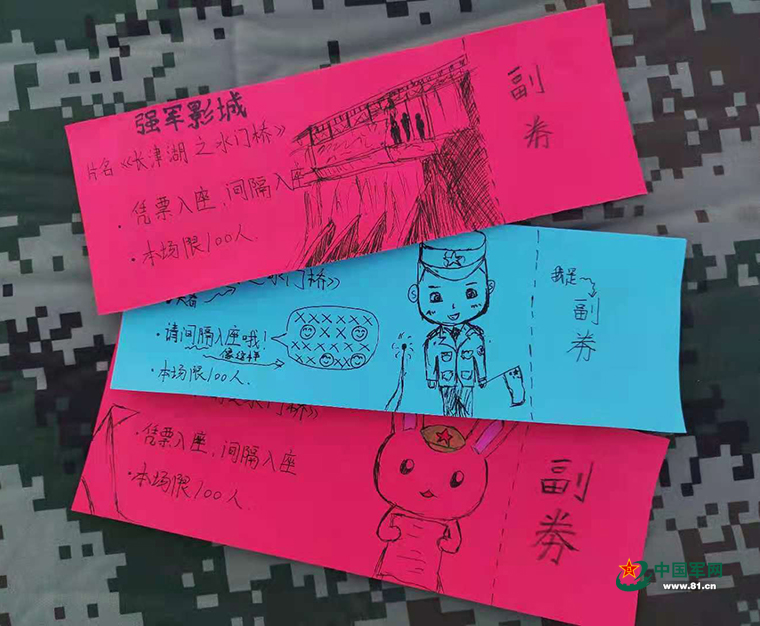 强军影城
片名《长津湖之水门桥》
·凭票入座、间隔入座
·本场限100人.
副券
之水门桥》
·请间隔入座哦!
像这样
·本场限100人.
我是
副券
水门桥》
·凭票入座、间隔入座
·本场限100人.
副券
中国军网
www.81.cn